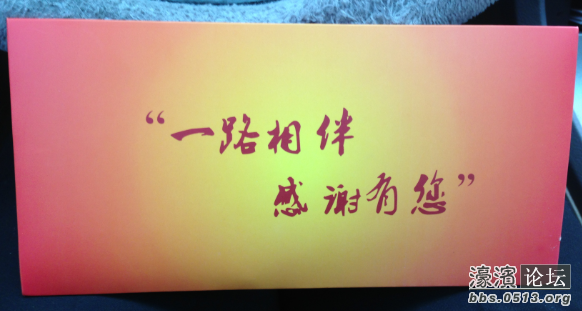 “一路相伴
感谢有您”
濠滨论坛
bbs.0513.org